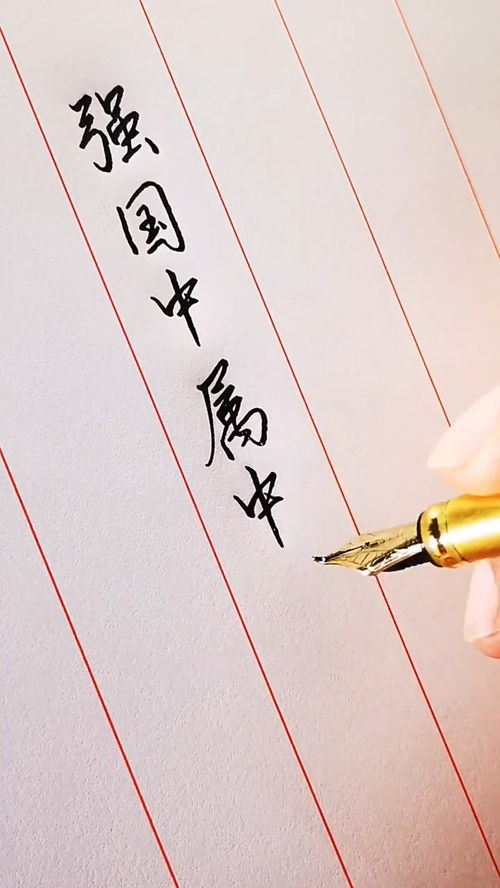 强国中属中